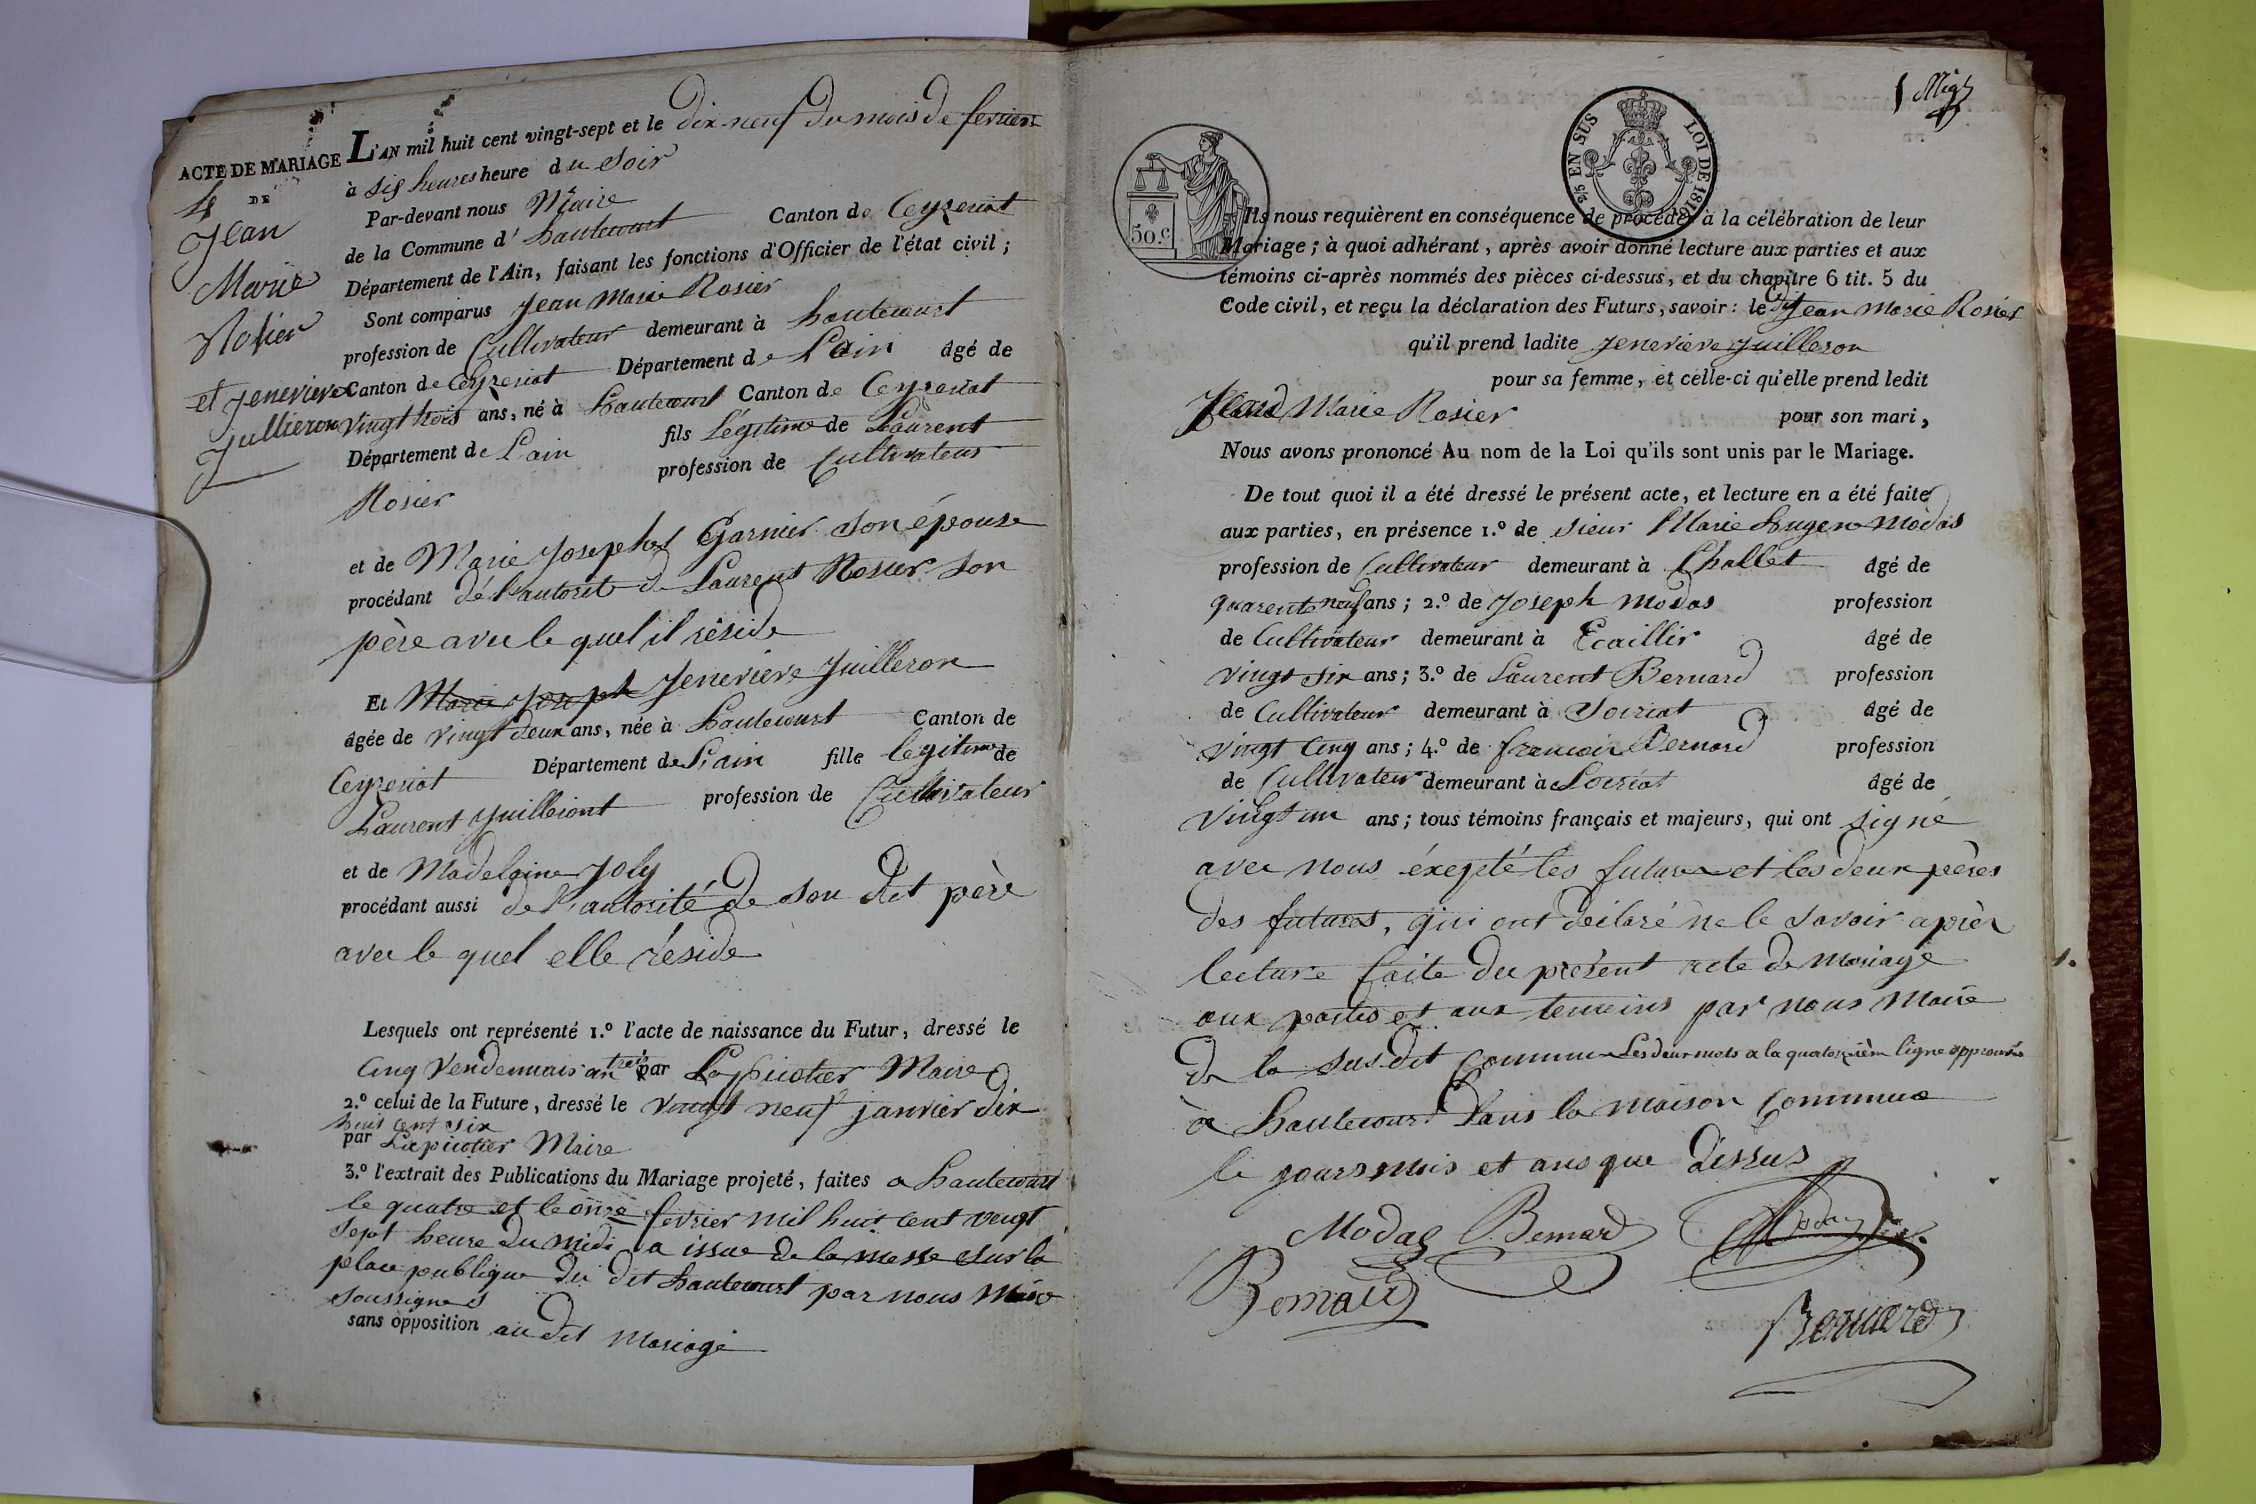 ACTE DE MARIAGE
4 DE
Jean
Marie
Rosier
et Jenevieve
Jullieron
L'AN mil huit cent vingt-sept et le dix-neuf du mois de fevrier
à six heures heure du soir
Par-devant nous Maire
de la Commune d' hautecourt Canton de Ceyzeriat
Département de l'Ain, faisant les fonctions d'Officier de l'état civil ;
Sont comparus Jean Marie Rosier
profession de Cultivateur demeurant à hautecourt
Canton de Ceyzeriat Département de L'ain âgé de
vingt trois ans, né à hautecourt Canton de Ceyzeriat
Département de L'ain fils Légitime de Laurent
Rosier profession de Cultivateur
et de Marie Josephet Garnier son épouse
procédant de l'autorité de Laurent Rosier son
père avec le quel il réside
Et Marie Joseph Jenevieve Juilleron
âgée de vingt deux ans, née à hautecourt Canton de
Ceyzeriat Département de L'ain fille legitime de
Laurent Juilleiont profession de Cultivateur
et de Madelaine Joly
procédant aussi de l'autorité de son dit père
avec le quel elle réside
Lesquels ont représenté 1.º l'acte de naissance du Futur, dressé le
Cinq Vendemiais an par Lapicotier Maire
2.º celui de la Future, dressé le vingt neuf janvier dix
huit cent six
par Lapicotier Maire
3.º l'extrait des Publications du Mariage projeté, faites a hautecourt
le quatre et le onze fevrier mil huit cent vingt
sept heure du midi a issue de la messe sur la
place publique du dit hautecourt par nous Maire
soussignés
sans opposition au dit Mariage
50.c
2/5 EN SUS LOI DE 1816
Ils nous requièrent en conséquence de procéder à la célébration de leur
Mariage ; à quoi adhérant, après avoir donné lecture aux parties et aux
témoins ci-après nommés des pièces ci-dessus, et du chapitre 6 tit. 5 du
Code civil, et reçu la déclaration des Futurs, savoir : le dit Jean Marie Rosier
qu'il prend ladite Jenevieve Juilleron
pour sa femme, et celle-ci qu'elle prend ledit
Jean Marie Rosier pour son mari,
Nous avons prononcé Au nom de la Loi qu'ils sont unis par le Mariage.
De tout quoi il a été dressé le présent acte, et lecture en a été faite
aux parties, en présence 1.º de sieur Marie Eugene Modas
profession de Cultivateur demeurant à Challet âgé de
quarente neuf ans ; 2.º de Joseph Modas profession
de Cultivateur demeurant à Ecaillir âgé de
vingt six ans ; 3.º de Laurent Bernard profession
de Cultivateur demeurant à Soiriat âgé de
vingt Cinq ans ; 4.º de francois Bernard profession
de Cultivateur demeurant à Soiriat âgé de
vingt un ans ; tous témoins français et majeurs, qui ont signé
avec nous éxepté les futurs et les deux pères
des futures, qui ont déclaré ne le savoir après
lecture faite du présent acte de mariage
aux parties et aux temoins par nous Maire
de la sus dit Commune Les deux mots a la quatorzièm ligne approuvés
à hautecourt dans la maison Commune
le jours mois et ans que dessus
Modas Bernard
Bernard
Bernard